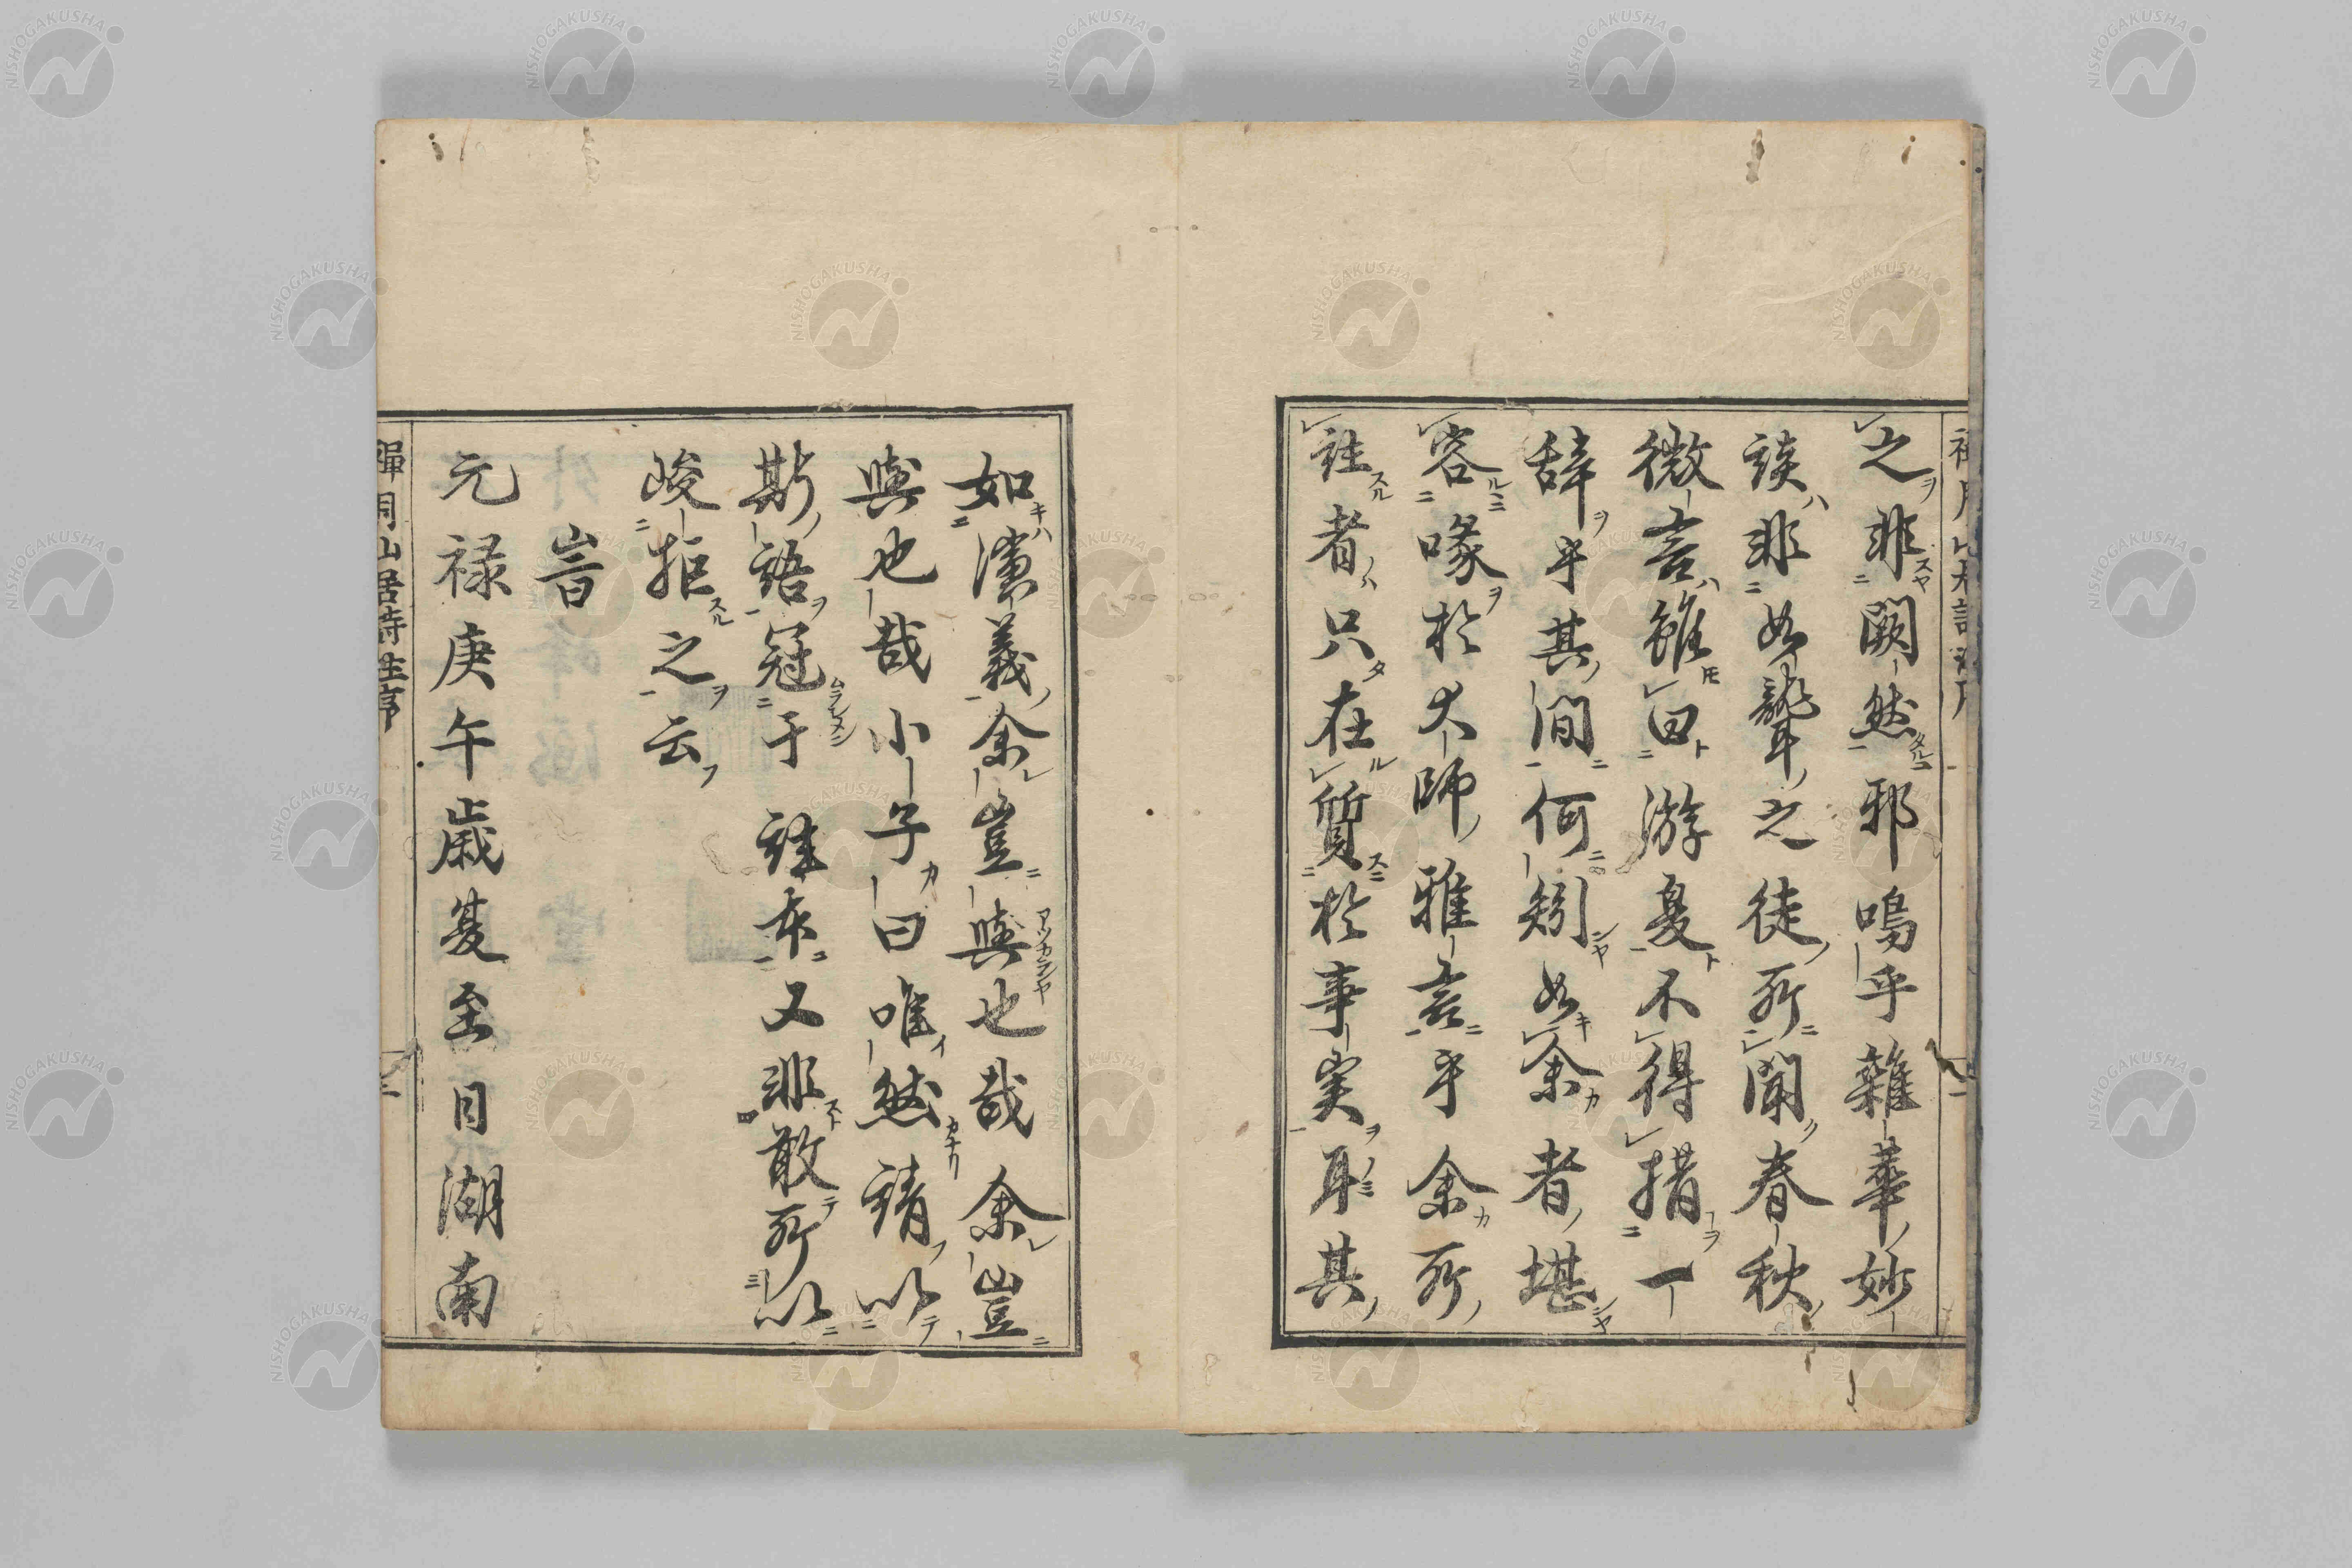 之非闕然邪鳴乎雜華妙
談非如聾之徒所聞春秋
微言雖曰游夏不得措一
辞乎其間何矧如余者堪
容喙於大師雅言乎余所
註者只在質於事実耳其
如濱義余豈與也哉余豈
與也哉小子曰唯然請以
斯語冠于註末又非敢所以
峻拒之云
旹
元禄庚午歳夏至日湖南
禪月山居詩註序
NISHOGAKUSHA